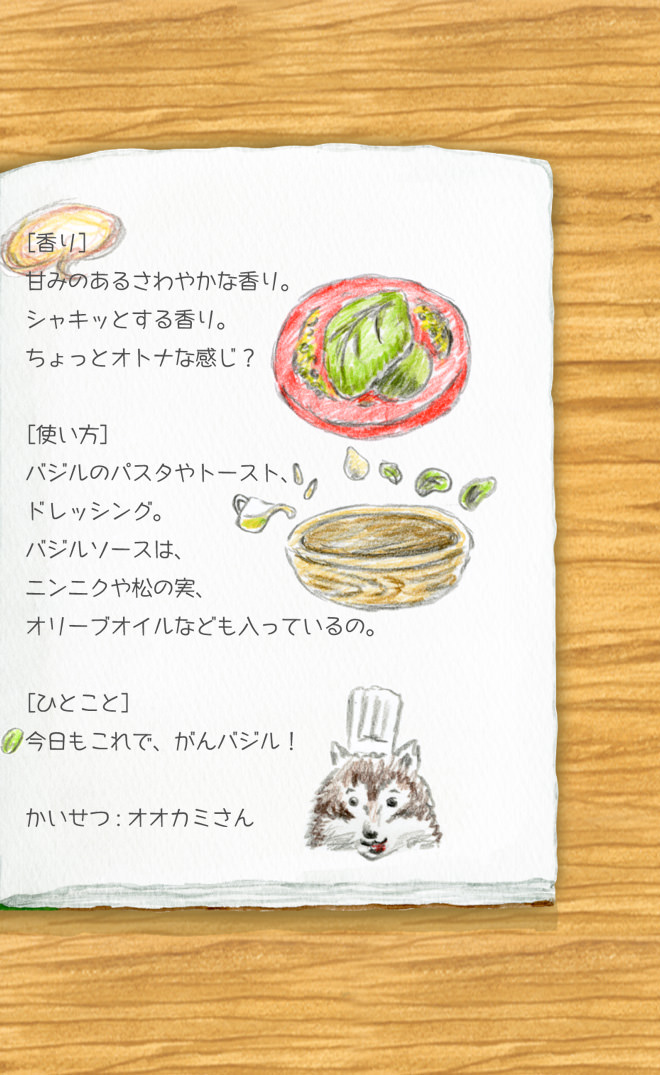 [香り]
甘みのあるさわやかな香り。
シャキッとする香り。
ちょっとオトナな感じ？
[使い方]
バジルのパスタやトースト、
ドレッシング。
バジルソースは、
ニンニクや松の実、
オリーブオイルなども入っているの。
[ひとこと]
今日もこれで、がんバジル！
かいせつ：オオカミさん